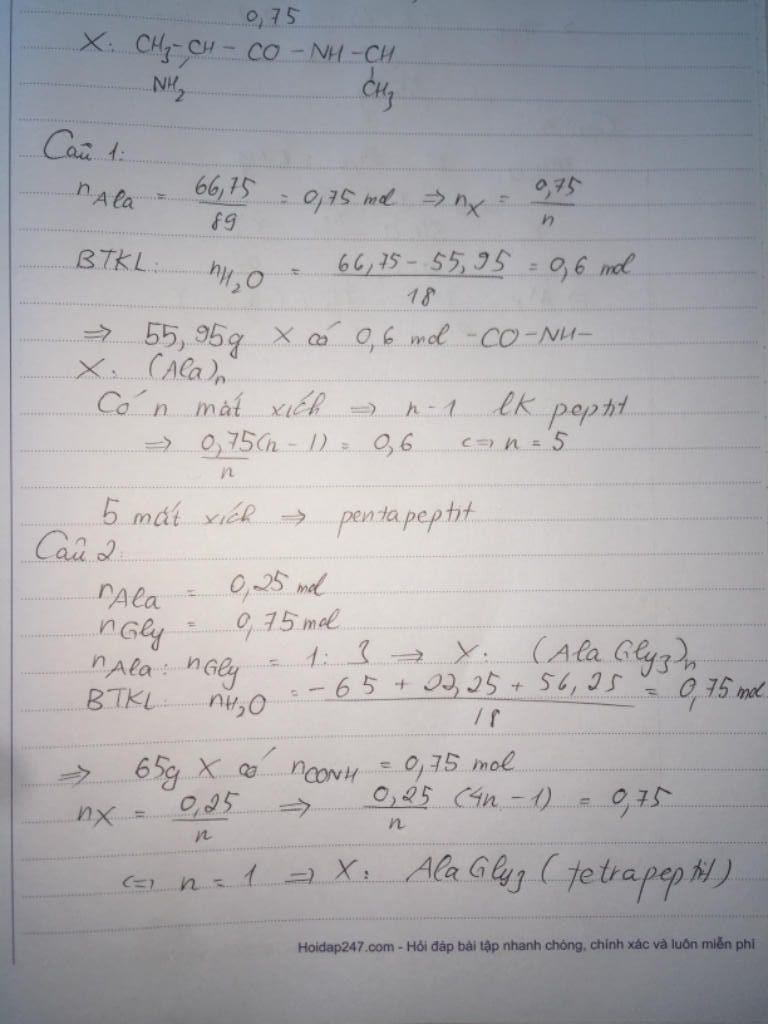 0,75
X: CH3-CH-CO-NH-CH
NH2 CH3
Câu 1:
nAla = 66,75/89 = 0,75 mol ⇒ nX = 0,75/n
BTKL: nH2O = 66,75 - 55,95/18 = 0,6 mol
⇒ 55,95g X có 0,6 mol -CO-NH-
X: (Ala)n
Có n mắt xích ⇒ n-1 lk peptit
⇒ 0,75(n-1)/n = 0,6 <=> n = 5
5 mắt xích ⇒ pentapeptit
Câu 2:
nAla = 0,25 mol
nGly = 0,75 mol
nAla : nGly = 1:3 → X: (AlaGly3)n
BTKL: nH2O = -65 + 22,25 + 56,25/18 = 0,75 mol
⇒ 65g X có nCONH = 0,75 mol
nX = 0,25/n ⇒ 0,25/n (4n-1) = 0,75
<=> n = 1 ⇒ X: AlaGly3 (tetrapeptit)
Hoidap247.com - Hỏi đáp bài tập nhanh chóng, chính xác và luôn miễn phí